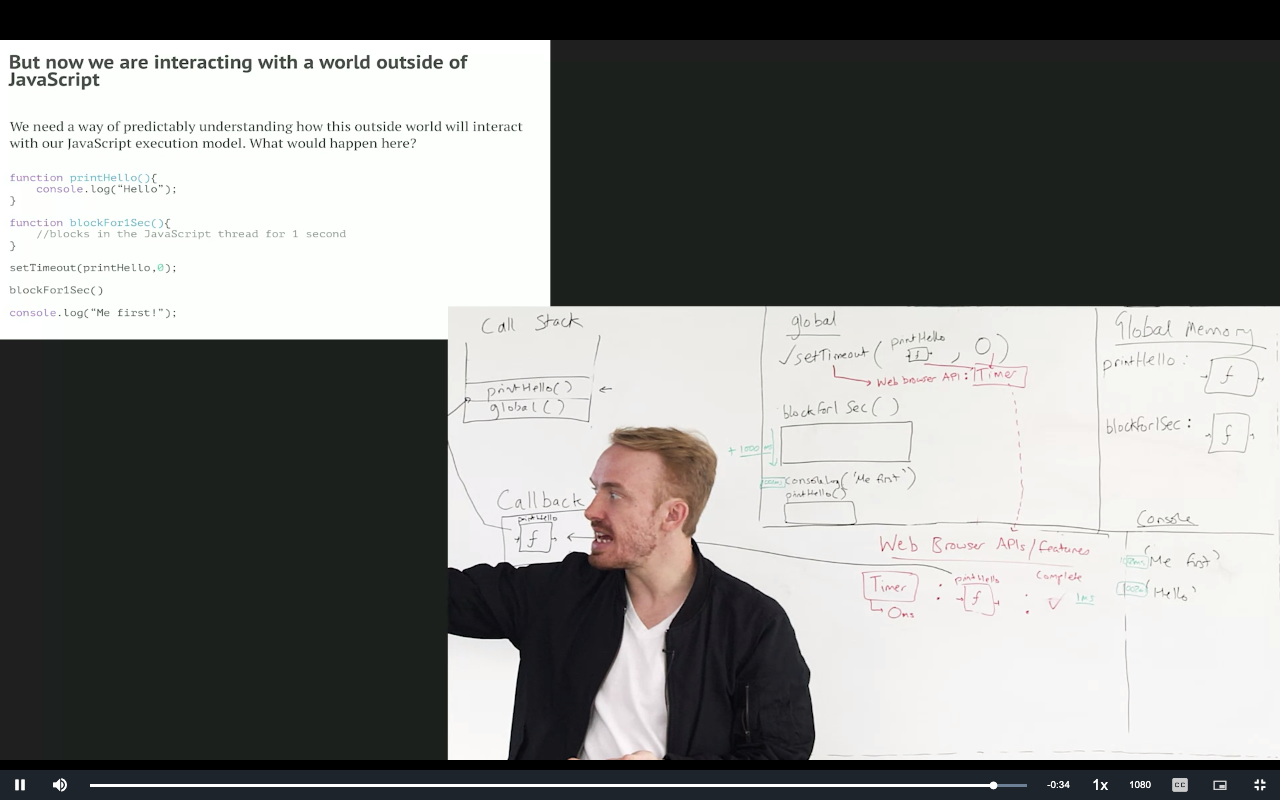 But now we are interacting with a world outside of
JavaScript
We need a way of predictably understanding how this outside world will interact
with our JavaScript execution model. What would happen here?
function printHello(){
    console.log(“Hello”);
}
function blockFor1Sec(){
    //blocks in the JavaScript thread for 1 second
}
setTimeout(printHello,0);
blockFor1Sec()
console.log(“Me first!”);
Call Stack
printHello()
global()
Callback
printHello
f
global
✓setTimeout( printHello f , 0)
Web browser API: Timer
blockfor1Sec()
+ 1000 ms
consoleLog('Me first')
printHello()
Global Memory
printHello: f
blockfor1Sec: f
Console
'Me first'
'Hello'
Web Browser APIs/features
Timer : printHello f : Complete ✓ 1ms
0ms
-0:34
1x
1080
CC